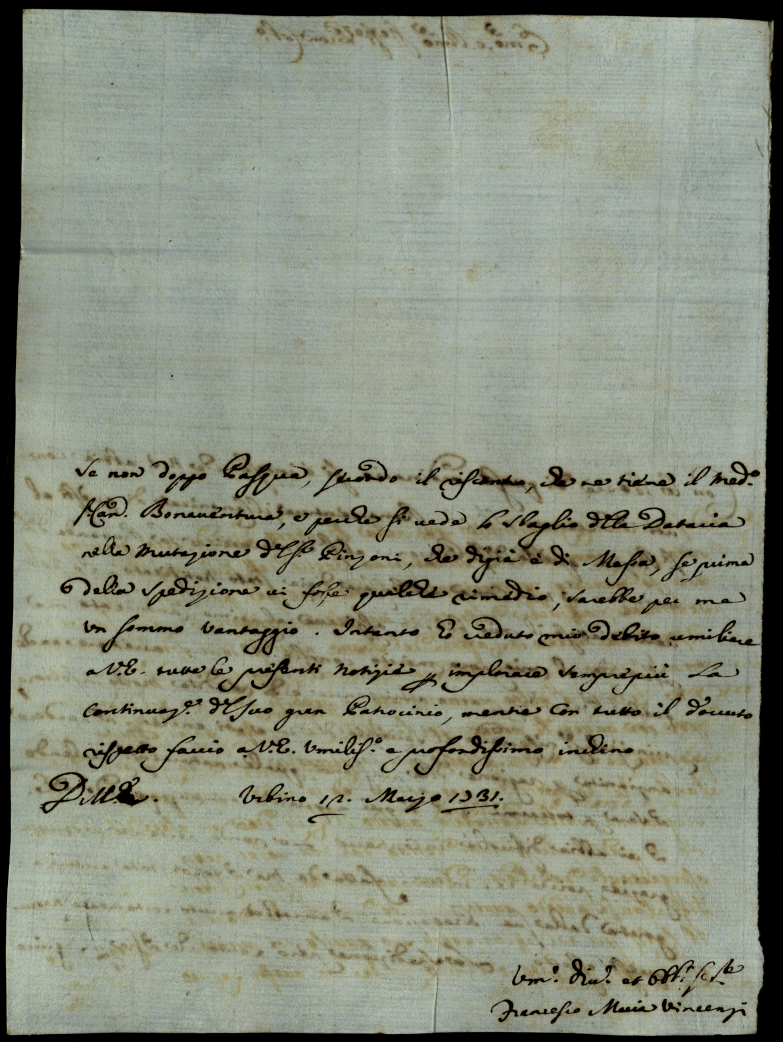 se non doppo Pasqua, secondo il riscontro, che ne tiene il Med.º
Can. Bonaventura, e perche si vede lo sbaglio della Dataria
nella mutazione del Sig. Pinzoni, che digià è di Massa, se prima
della spedizione vi fosse qualche rimedio, sarebbe per me
un sommo vantaggio. Intanto hò creduto mio debito umiliare
a V.E. tutte le presenti notizie per implorare semprepiù la
continuaz.e del suo gran Patrocinio, mentre con tutto il dovuto
rispetto faccio a V.E. umiliss.º e profondissimo inchino
Di V.E. Urbino 12. Marzo 1731.
Um.º Div.º et Obb.º
Francesco Maria Vincenzi